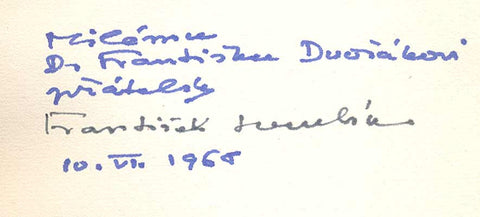 Milému
Dr Františku Dvořákovi
přátelsky
František
10. VI. 1968